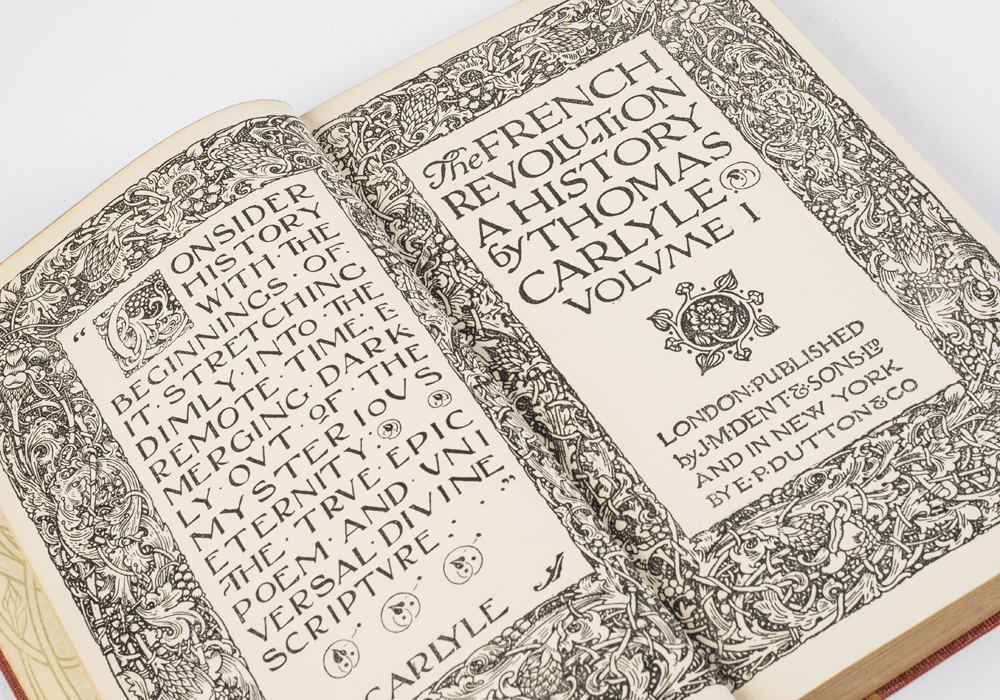 "CONSIDER
HISTORY
WITH·THE
BEGINNINGS·OF
IT·STRETCHING
DIMLY·INTO·THE
REMOTE·TIME; E
MERGING·DARK
LY·OVT·OF·THE
MYSTERIOVS
ETERNITY:
THE·TRVE·EPIC
POEM·AND·VNI
VERSAL DIVINE
SCRIPTVRE..."
CARLYLE
The FRENCH
REVOLUTION
A HISTORY
by THOMAS
CARLYLE
VOLVME I
LONDON:PUBLISHED
by J·M·DENT·&·SONS·LTD
AND IN NEW YORK
BY E·P·DUTTON & CO